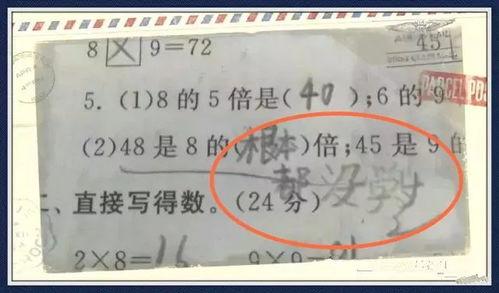 8☒9=72
5. (1)8 的 5 倍是(40);6 的 9
(2)48 是 8 的(根本)倍;45 是 9 的
都没学
二、直接写得数。(24 分)
2×8=16 9×9=81
PARCEL PO